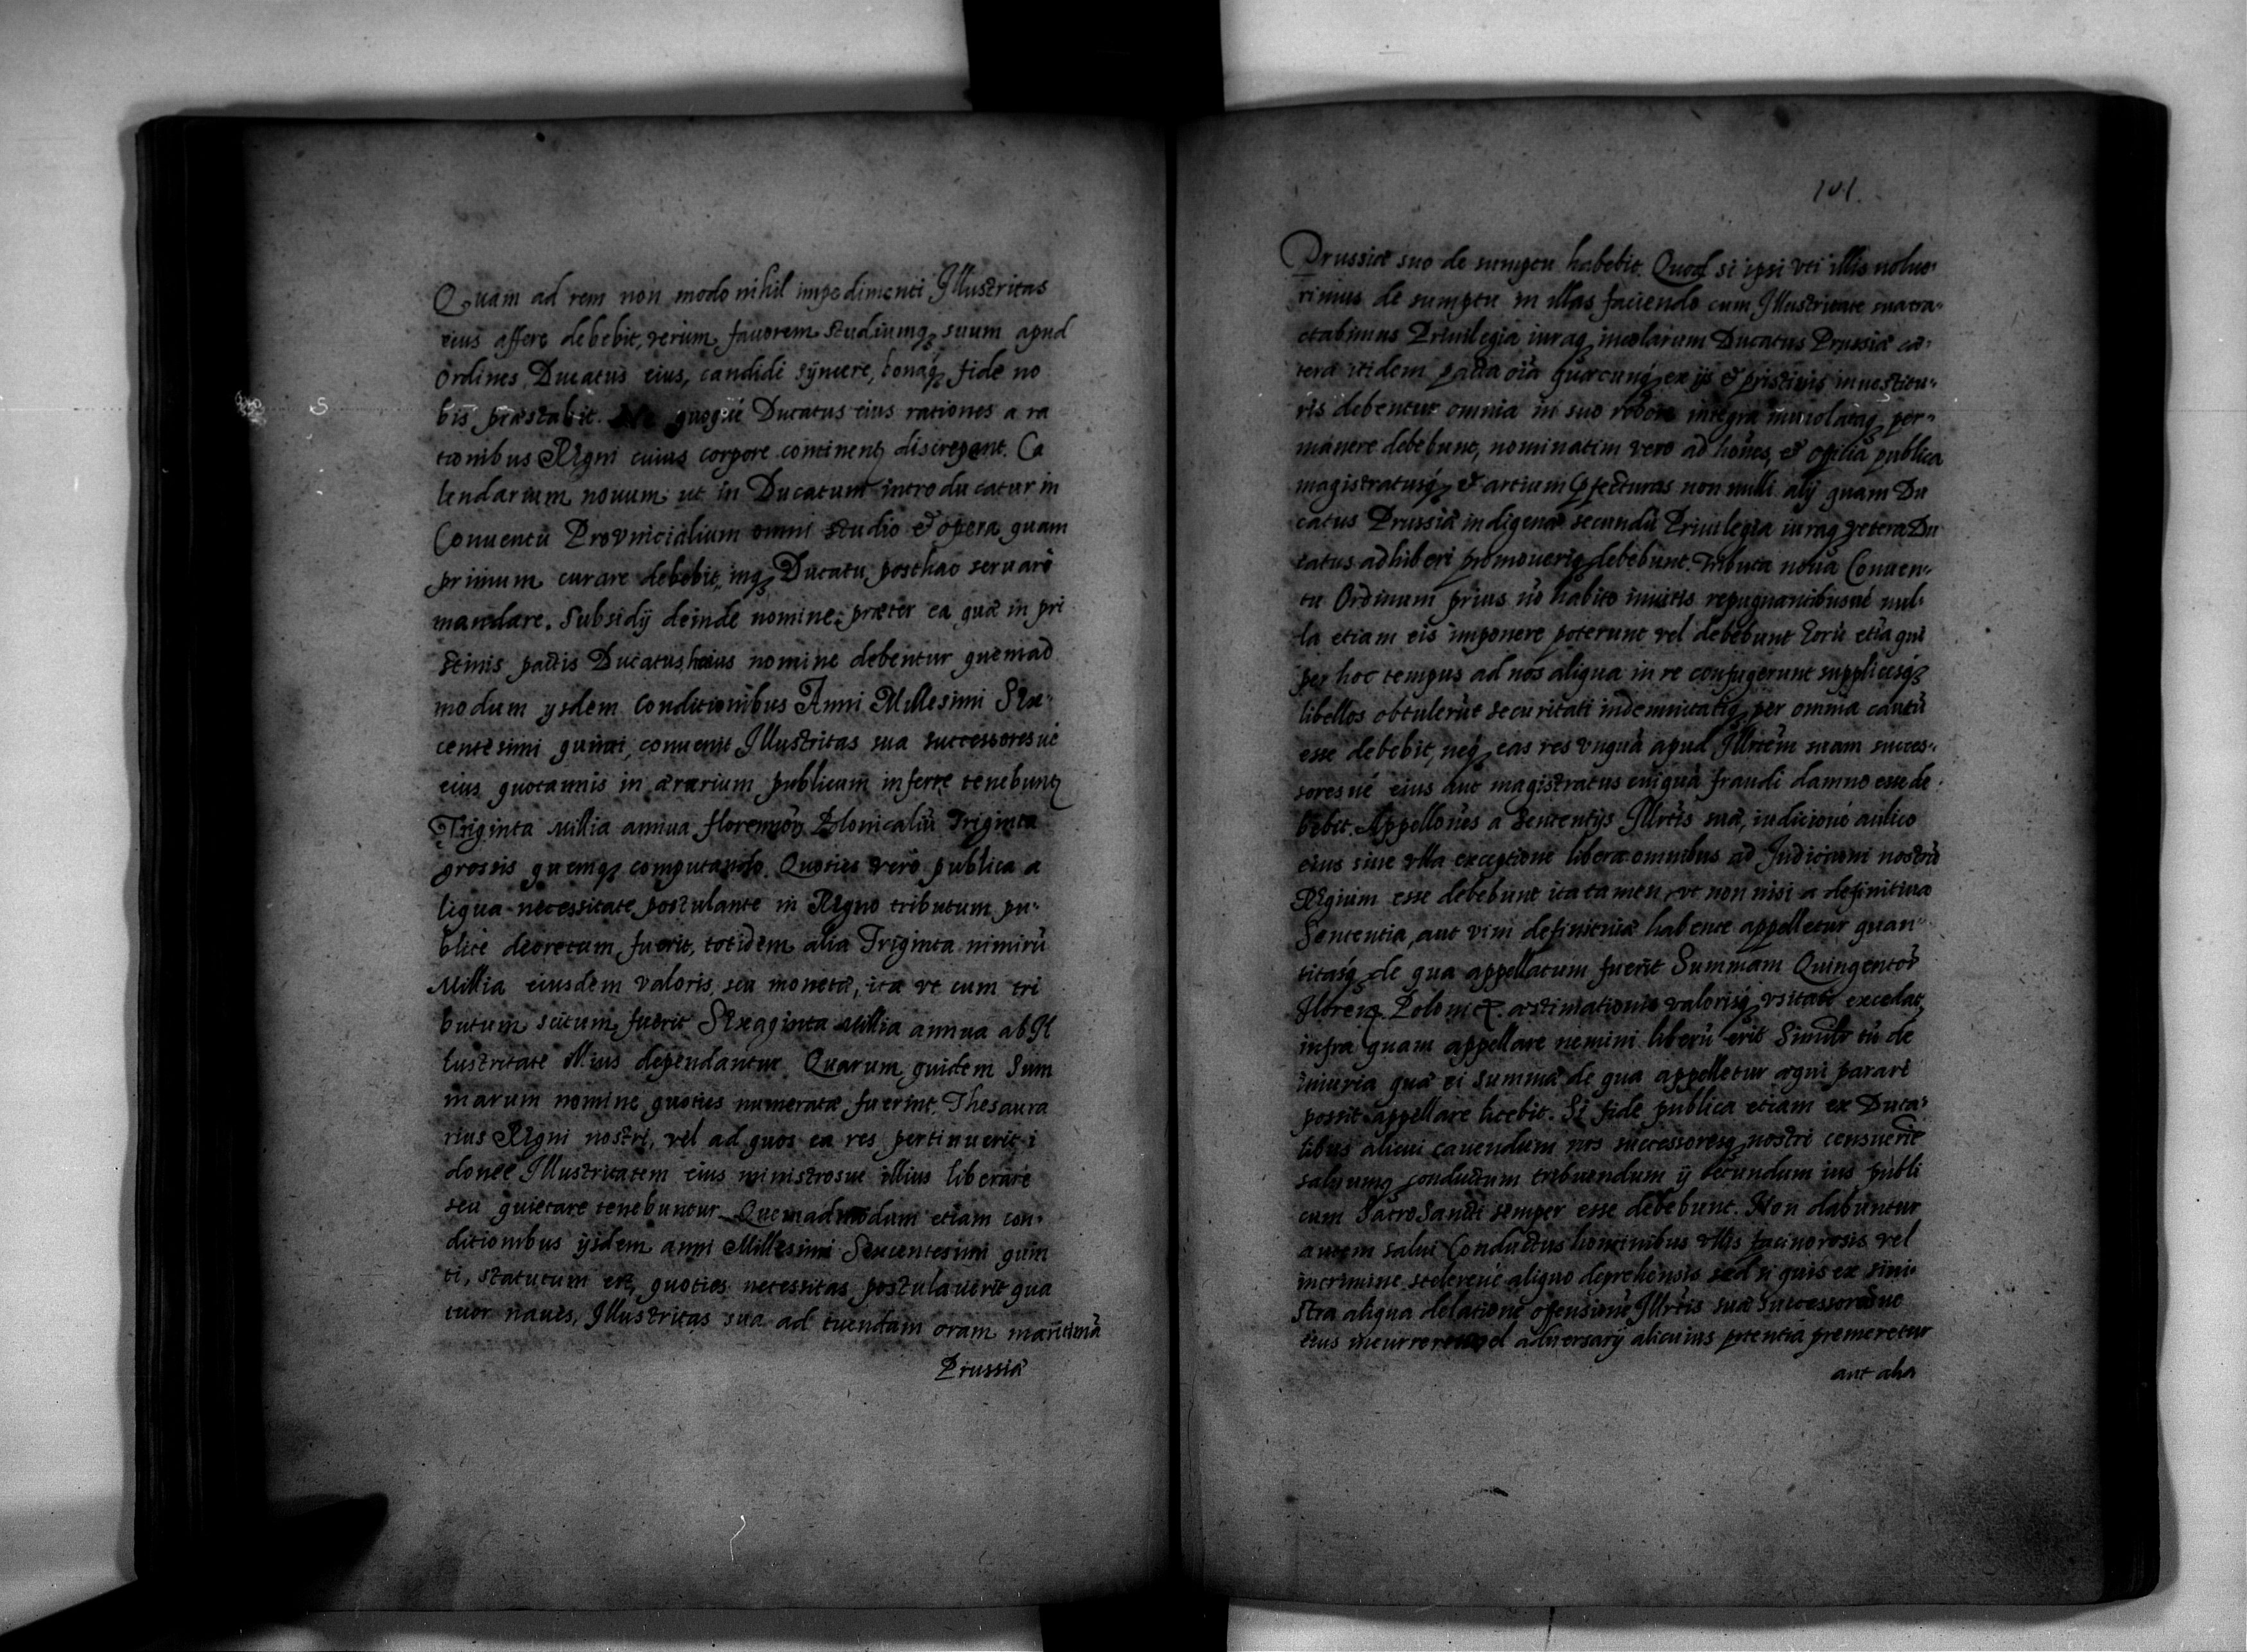 Quam ad rem non modo nihil impedimenti Illustritas
eius affere debebit, verum fauorem studiumq; suum apud
Ordines Ducatus eius, candidè syncere, bonaq; fide no
bis præstabit. quoqué Ducatus eius rationes a ra
tionibus Regni cuius corpore continent discrepant. Ca
lendarium nouum ut in Ducatum introducatur in
Conuentu Provincialium omni studio et opera quam
primum curare debebit, inq; Ducatu posthac seruare
mandare. Subsidij deinde nomine, præter ea quæ in pri
stinis pactis Ducatus huius nomine debentur quemad
modum ysdem Conditionibus Anni Millesimi Sex-
centesimi quinti, conuenit Illustritas sua successoresué
eius quotannis in ærarium publicum inferre tenebunt
Triginta Millia annua florenorũ Polonicaliũ Triginta
grossis quemq; computando. Quoties vero publica a
liqua necessitate postulante in Regno tributum pu-
blice decretum fuerit, totidem alia Triginta nimirũ
Millia eiusdem valoris, seu monetæ, ita vt cum tri
butum scitum fuerit Sexaginta Millia annua ab Il
lustritate Illius dependantur. Quarum quidem Sum
marum nomine quoties numeratæ fuerint, Thesaura
rius Regni nostri, vel ad quos ea res pertinuerit i
donee Illustritatem eius ministrosue illius liberare
seu quietare tenebuntur. Quemadmodum etiam con-
ditionibus ijsdem anni Millesimi Sexcentesimi quin
ti, statutum est, quoties necessitas postulauerit qua
tuor naues, Illustritas sua ad tuendam oram maritimã
Prussiæ
101.
Prussiæ suo de sumptu habebit. Quod si ipsi vti illis nolue-
rimus de sumptu in illas faciendo cum Illustritate sua tra-
ctabimus Priuilegia iuraq; incolarum Ducatus Prussiæ cæ-
tera itidem pacta oĩa quæcunq; ex ijs et pristinis inuestitu-
ris debentur omnia in suo robore integra inuiolataq; per-
manere debebunt, nominatim vero ad hoñes, et officia publica
magistratusq; et artium præfecturas non nulli alij quam Du
catus Prussiæ indigenæ secundũ Priuilegia iuraq; vetera Du
catus adhiberi promouerig; debebunt. Tributa noua Conuen-
tu Ordinum prius nõ habito inuitis repugnantibusué nul-
la etiam eis imponere poterunt vel debebunt Eorũ etiã qui
per hoc tempus ad nos aliqua in re confugerunt supplicesq;
libellos obtulerũt securitati indemnitatiq; per omnia cautũ
esse debebit, neq; eas res vnquã apud Illrtem suam succes-
soresué eius aut magistratus cuiquã fraudi damno esse de
bebit. Appellones a Sententijs Illrtis suæ, iudicioué aulico
eius siue vlla exceptione liberæ omnibus ad Iudicium nostrũ
Regium esse debebunt ita tamen, vt non nisi a definitiua
Sententia, aut vim definitiuæ habente appelletur quan-
titasq; de qua appellatum fuerit Summam Quingentor
floren. Polonic. æstimationis valorisq; vsitati excedat,
infra quam appellare nemini liberũ erit Similr tñ de
iniuria quæ ei summæ de qua appelletur æqui parari
possit appellare licebit. Si fide publica etiam ex Duca-
libus alicui cauendum nos successoresq; nostri censuerit
saluumq; conductum tribuendum ij secundum ius publi
cum SacroSancti semper esse debebunt. Non dabuntur
autem salui Conductus hominibus vllis facinorosis vel
in crimine scelereué aliquo deprehensis sed si quis ex sini-
stra aliqua delatione offensione Illrtis suæ Successorumue
eius incurreret vel aduersarij alicuius potentia premeretur
aut alia